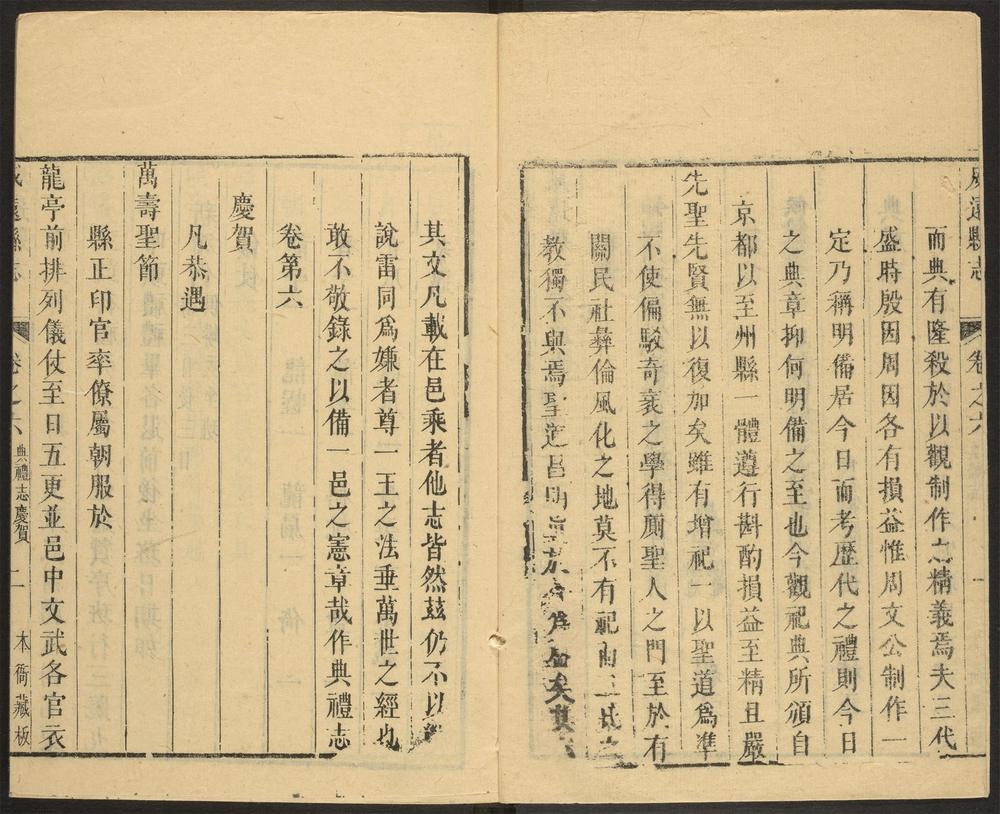 威遠縣志
卷之六
一
而典有隆殺於以觀制作之精義焉夫三代
盛時殷因周因各有損益惟周文公制作一
定乃稱明備居今日而考歷代之禮則今日
之典章抑何明備之至也今觀祀典所頒自
京都以至州縣一體遵行斟酌損益至精且嚴
先聖先賢無以復加矣雖有增祀一以聖道為準
不使偏駁奇衺之學得廁聖人之門至於有
關民社彝倫風化之地莫不有祀
教獨不與焉聖道昌明
其文凡載在邑乘者他志皆然茲仍不以
說雷同為嫌者尊一王之法垂萬世之經也
敢不敬錄之以備一邑之憲章哉作典禮志
卷第六
慶賀
凡恭遇
萬壽聖節
縣正印官率僚屬朝服於
龍亭前排列儀仗至日五更並邑中文武各官衣
威遠縣志
卷之六
典禮志慶賀
二
本衙藏板